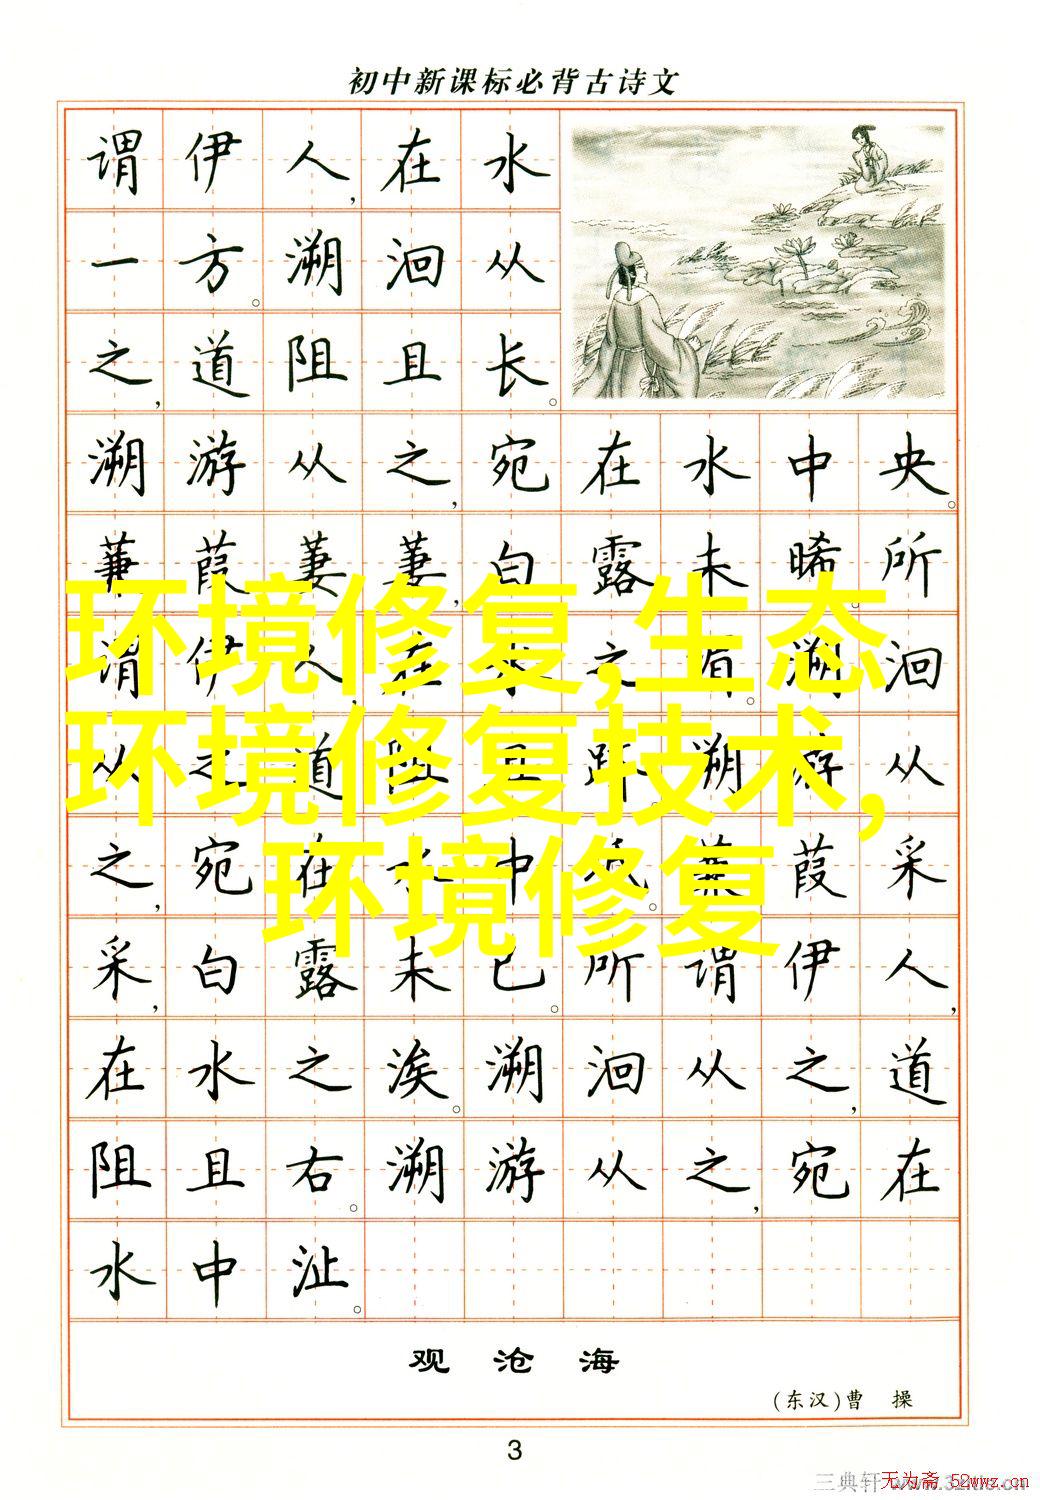 初中新课标必背古诗文
谓伊人,在水
一方。溯洄从
之,道阻且长。
溯游从之,宛在水中央。
蒹葭萋萋,白露未晞。所
谓伊人,在水之湄。溯洄
从之,道阻且跻。溯游从
之,宛在水中坻。蒹葭采
采,白露未已。所谓伊人,
在水之涘。溯洄从之,道
阻且右。溯游从之,宛在
水中沚。
环境修复,生态
环境修复技术,
环境修复
观沧海
(东汉)曹 操
3
三典轩
无为斋 52wwz.cn